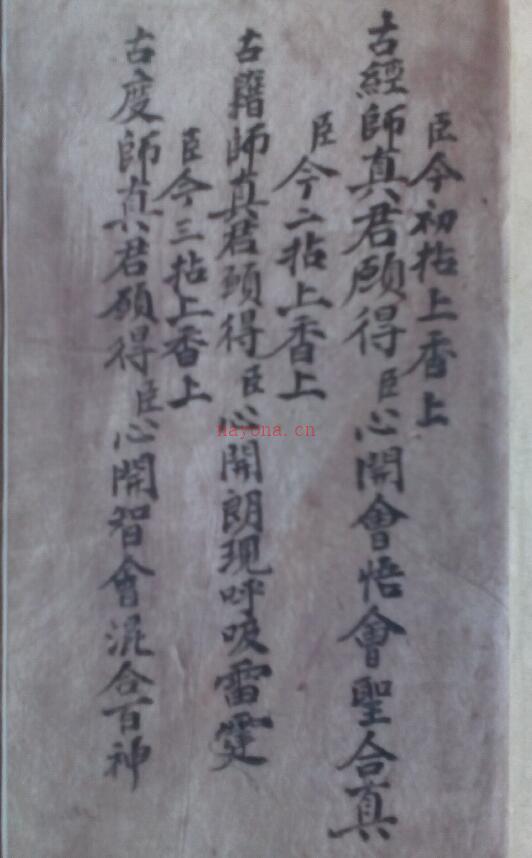 臣今初拈上香上
古經師真君願得臣心開會悟會聖合真
臣今二拈上香上
古籍師真君願得臣心開朗現呼吸雷霆
臣今三拈上香上
古度師真君願得臣心開智會混合百神
nayona.cn